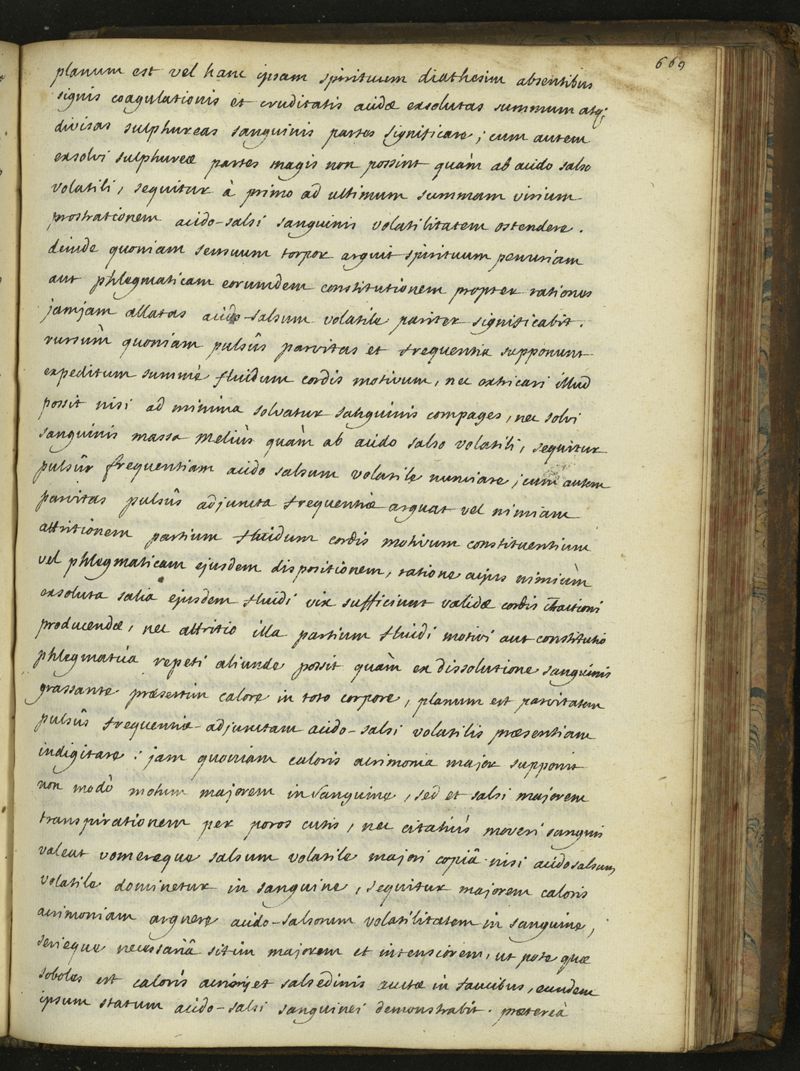 669
planum est vel hanc ipsam spirituum diathesim absentibus
signis coagulationis et cruditatis acidæ exsolutas summum atq;
divisas sulphureas sanguinis partes significare; cum autem
exsolvi sulphureæ partes magis non possint quàm ab acido salso
volatili, sequitur à primo ad ultimum summam virium
prostrationem acido-salsi sanguinis volatilitatem ostendere.
deinde quoniam sensuum torpor arguit spirituum penuriam
aut phlegmaticam eorumdem constitutionem propter rationes
jamjam allatas acido-salsum volatile pariter significabit.
rursùm quoniam pulsûs parvitas et frequentia supponunt
expeditum summè fluidum cordis motivum, nec extricari illud
possit nisi ad minima solvatur sanguinis compages, nec solvi
sanguinis massa meliùs quàm ab acido salso volatili, sequitur
pulsûs frequentiam acido salsum volatile nunciare; cum autem
parvitas pulsûs adjuncta frequentiæ arguat vel nimiam
attritionem partium fluidum cordis motivum constituentium
vel phlegmaticam ejusdem dispositionem, ratione cujus nimiùm
exsoluta salia ejusdem fluidi vix sufficiunt validæ cordis
producendæ, nec attritio illa partium fluidi motivi aut constitutio
phlegmatica repeti aliunde possit quàm ex dissolutione sanguinis
grassante præsertim calore in toto corpore, planum est parvitatem
pulsûs frequentiæ adjunctam acido-salsi volatilis præsentiam
indigitare: jam quoniam caloris acrimonia major supponit
non modò motum majorem in sanguine, sed et salsi majorem
transpirationem per poros cutis, nec citatiùs moveri sanguis
valeat vomereque salsum volatile majori copiâ nisi acido salsum
volatile dominetur in sanguine, sequitur majorem caloris
acrimoniam arguere acido-salsorum volatilitatem in sanguine;
serieque necessariâ sitim majorem et intensiorem, ut pote quæ
soboles est caloris acrioris et salsedinis auctæ in faucibus, eundem
ipsum statum acido-salsi sanguinei demonstrabit. prætereà